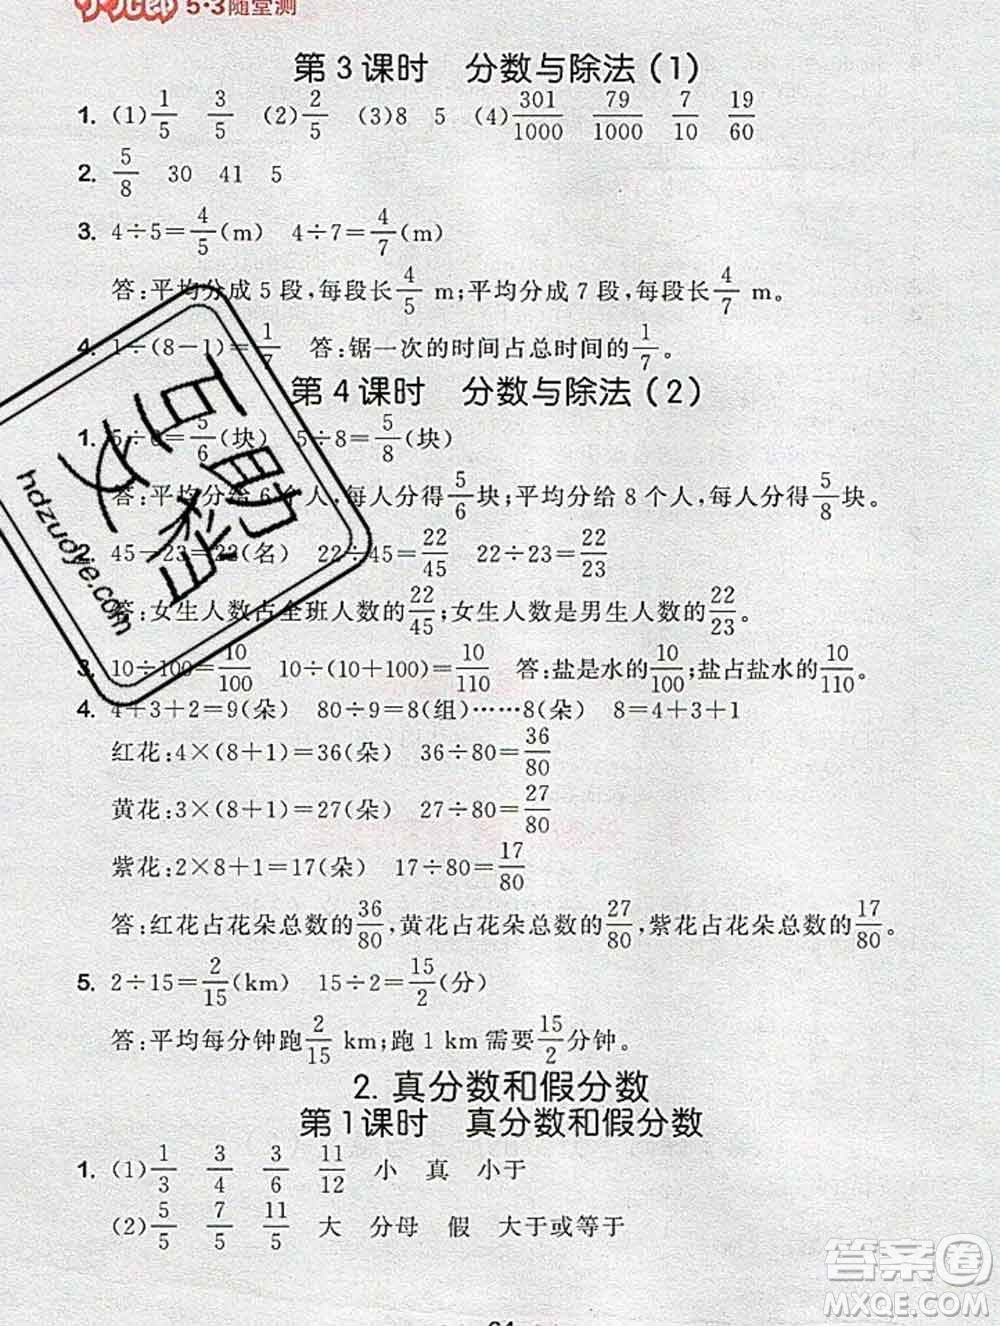 小儿郎 5·3随堂测
第3课时 分数与除法(1)
1. (1)1/5 3/5 (2)2/5 (3)8 5 (4)301/1000 79/1000 7/10 19/60
2. 5/8 30 41 5
3. 4÷5=4/5(m) 4÷7=4/7(m)
答:平均分成5段,每段长4/5 m;平均分成7段,每段长4/7 m。
4. 1÷(8-1)=1/7 答:锯一次的时间占总时间的1/7。
第4课时 分数与除法(2)
1. 5÷6=5/6(块) 5÷8=5/8(块)
答:平均分给6个人,每人分得5/6块;平均分给8个人,每人分得5/8块。
2. 45-23=22(名) 22÷45=22/45 22÷23=22/23
答:女生人数占全班人数的22/45;女生人数是男生人数的22/23。
3. 10÷100=10/100 10÷(10+100)=10/110 答:盐是水的10/100;盐占盐水的10/110。
4. 4+3+2=9(朵) 80÷9=8(组)……8(朵) 8=4+3+1
红花:4×(8+1)=36(朵) 36÷80=36/80
黄花:3×(8+1)=27(朵) 27÷80=27/80
紫花:2×8+1=17(朵) 17÷80=17/80
答:红花占花朵总数的36/80,黄花占花朵总数的27/80,紫花占花朵总数的17/80。
5. 2÷15=2/15(km) 15÷2=15/2(分)
答:平均每分钟跑2/15 km;跑1 km需要15/2分钟。
2. 真分数和假分数
第1课时 真分数和假分数
1. (1)1/3 3/4 3/6 11/12 小 真 小于
(2)5/5 7/5 11/5 大 分母 假 大于或等于
互助文档
hdzuoye.com
答案圈
MXQE.COM